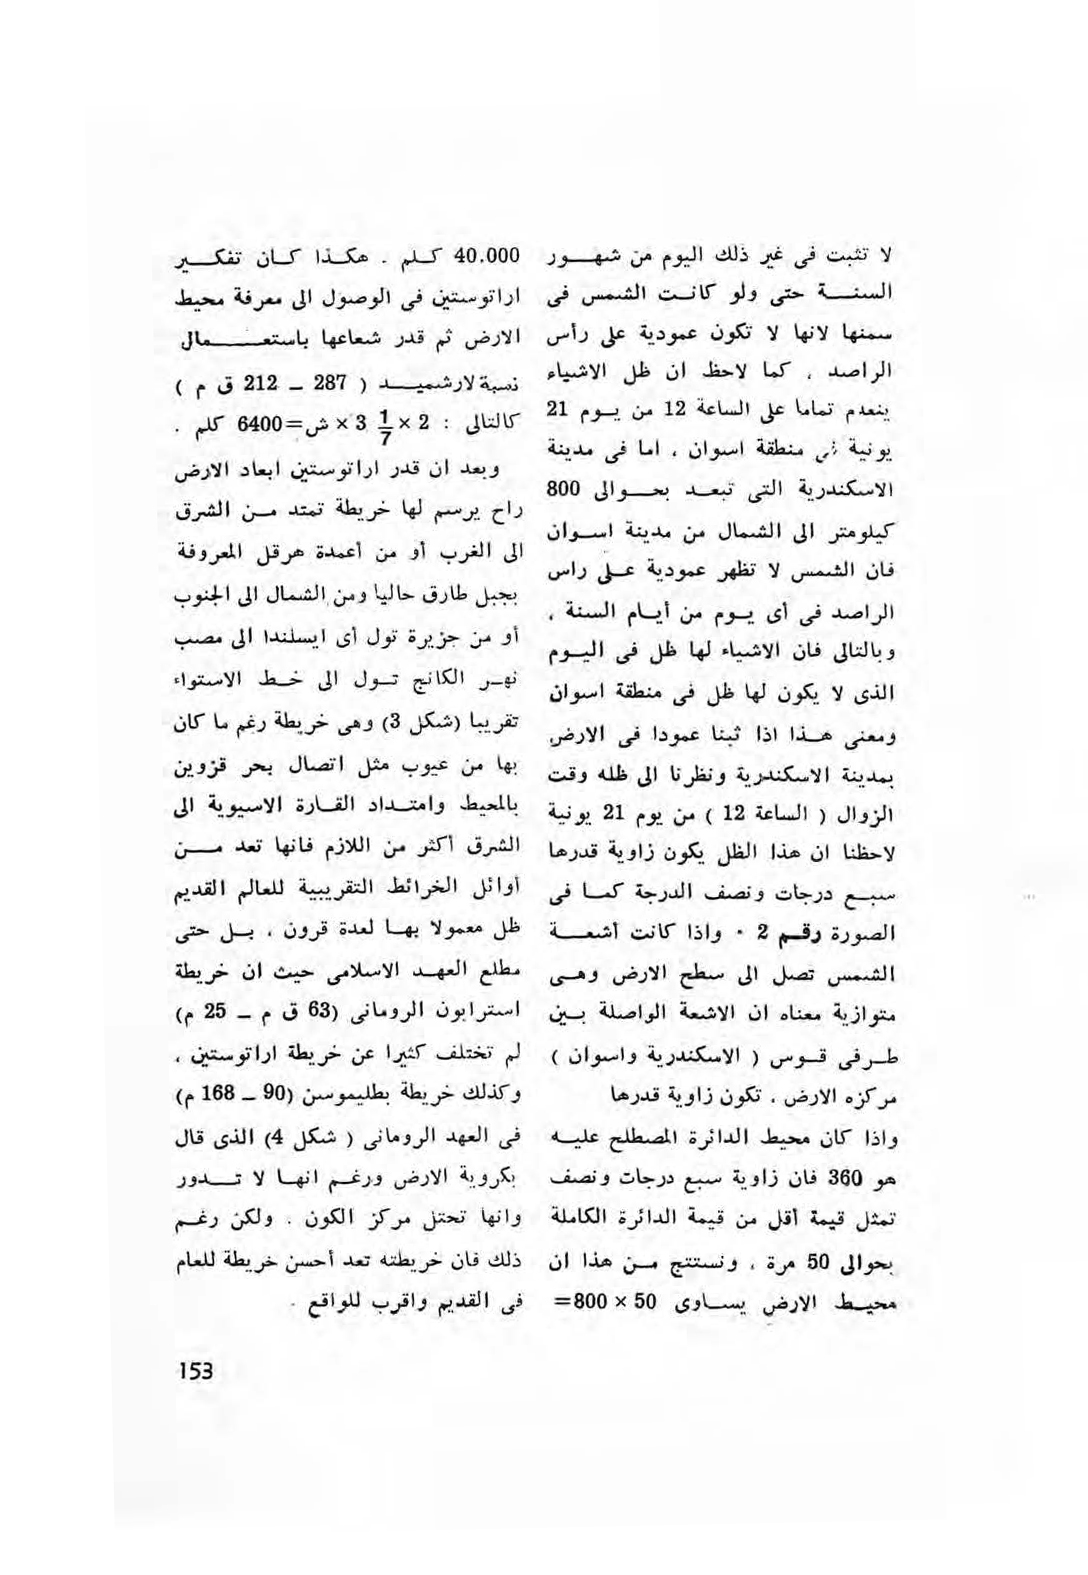 لا تثبت فى غير ذلك اليوم من شهور
السنة حتى ولو كانت الشمس فى
سمتها لانها لا تكون عمودية على رأس
الراصد ، كما لاحظ ان ظل الاشياء
ينعدم تماما على الساعة 12 من يوم 21
يونية فى منطقة اسوان ، اما فى مدينة
الاسكندرية التى تبعد بحوالى 800
كيلومتر الى الشمال من مدينة اسوان
فان الشمس لا تظهر عمودية على راس
الراصد فى أى يوم من أيام السنة ،
وبالتالى فان الاشياء لها ظل فى اليوم
الذى لا يكون لها ظل فى منطقة اسوان
ومعنى هذا اذا ثبتنا عمودا فى الارض
بمدينة الاسكندرية ونظرنا الى ظله وقت
الزوال ( الساعة 12 ) من يوم 21 يونية
لاحظنا ان هذا الظل يكون زاوية قدرها
سبع درجات ونصف الدرجة كما فى
الصورة رقم 2 . واذا كانت أشعة
الشمس تصل الى سطح الارض وهى
متوازية معناه ان الاشعة الواصلة بين
طرفى قوس ( الاسكندرية واسوان )
مركزه الارض ، تكون زاوية قدرها
واذا كان محيط الدائرة المصطلح عليه
هو 360 فان زاوية سبع درجات ونصف
تمثل قيمة أقل من قيمة الدائرة الكاملة
بحوالى 50 مرة ، ونستنتج من هذا ان
محيط الارض يساوى 50 × 800=
40.000 كلم . هكذا كان تفكير
اراتوستين فى الوصول الى معرفة محيط
الارض ثم قدر شعاعها باستعمال
نسبة لارشميد ( 287 – 212 ق م )
كالتالى : 2 × 1/7 3 × ش=6400 كلم .
وبعد ان قدر اراتوستين ابعاد الارض
راح يرسم لها خريطة تمتد من الشرق
الى الغرب أو من أعمدة هرقل المعروفة
بجبل طارق حاليا ومن الشمال الى الجنوب
أو من جزيرة تول أى ايسلندا الى مصب
نهر الكانج تول الى خط الاستواء
تقريبا (شكل 3) وهى خريطة رغم ما كان
بها من عيوب مثل اتصال بحر قزوين
بالمحيط وامتداد القارة الاسيوية الى
الشرق أكثر من اللازم فانها تعد من
أوائل الخرائط التقريبية للعالم القديم
ظل معمولا بها لعدة قرون ، بل حتى
مطلع العهد الاسلامى حيث ان خريطة
استرابون الرومانى (63 ق م – 25 م)
لم تختلف كثيرا عن خريطة اراتوستين ،
وكذلك خريطة بطليموسن (90 – 168 م)
فى العهد الرومانى ( شكل 4) الذى قال
بكروية الارض ورغم انها لا تدور
وانها تحتل مركز الكون . ولكن رغم
ذلك فان خريطته تعد أحسن خريطة للعام
فى القديم واقرب للواقع .
153